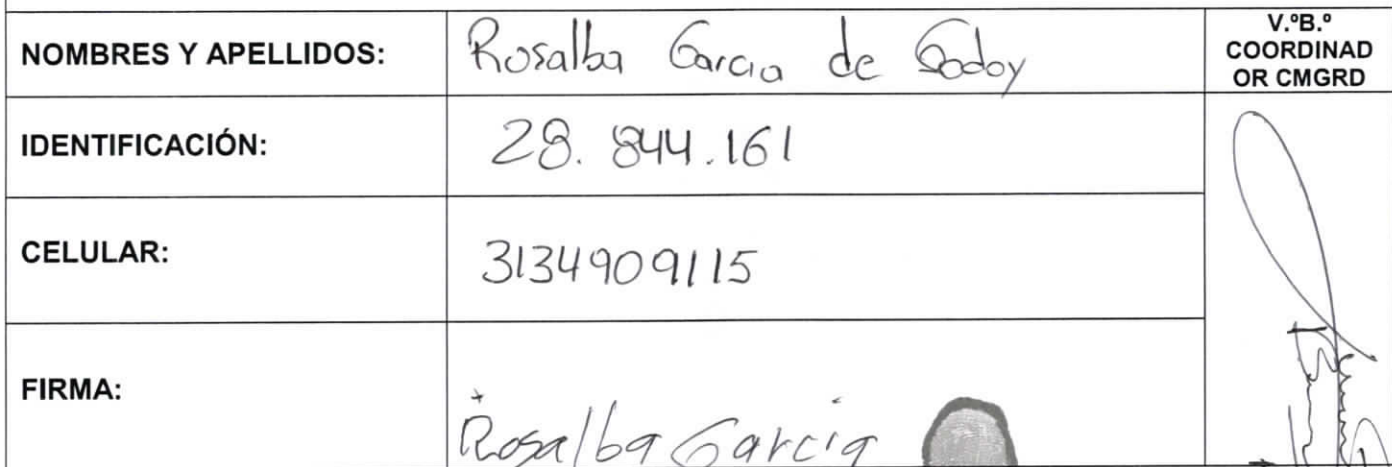 NOMBRES Y APELLIDOS: Rosalba Garcia de Godoy
V.ºB.º
COORDINAD
OR CMGRD
IDENTIFICACIÓN: 28. 844.161
CELULAR: 3134909115
FIRMA: Rosalba Garcia